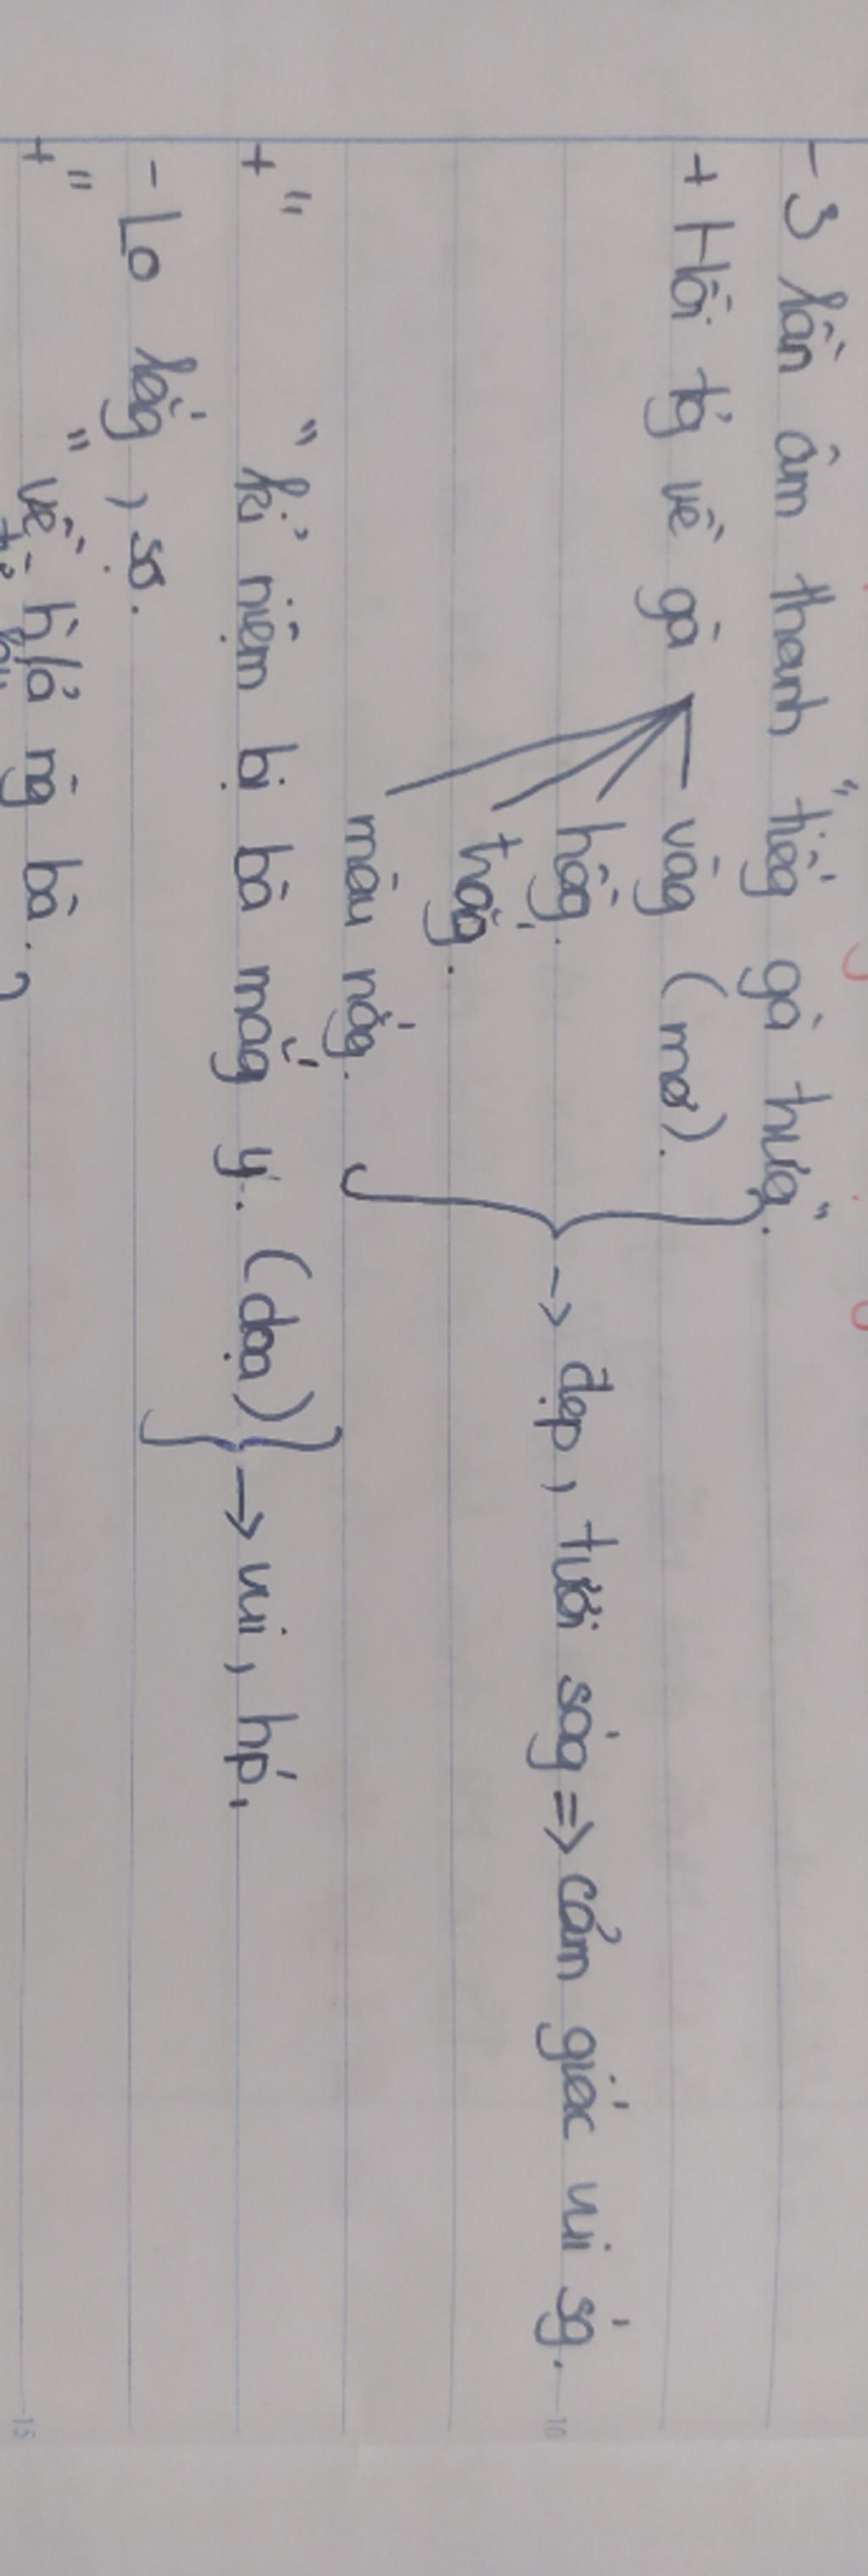 - 3 lần âm thanh "tiếg gà trưa".
+ Hồi tg̉ về gà vàg (mơ).
hồg.
trắg.
màu nắg.
→ đẹp, tươi ság => cảm giác vui sg.
+ " " kỉ niệm bị bà mắg y. (dọa)
→ vui, hp,
- Lo lắg, sợ.
+ " " về h̀/ả ng bà.